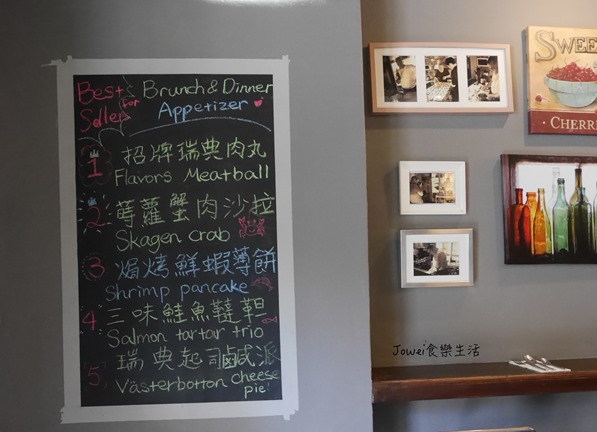 Best Seller
for
Brunch & Dinner
Appetizer
1 招牌瑞典肉丸
Flavors Meatball
2 蒔蘿蟹肉沙拉
Skagen crab
3 焗烤鮮蝦薄餅
Shrimp pancake
4. 三味鮭魚韃靼
Salmon tartar trio
5. 瑞典起司鹹派
Västerbotten cheese pie!
SWEE
CHERRI
Jowei食樂生活